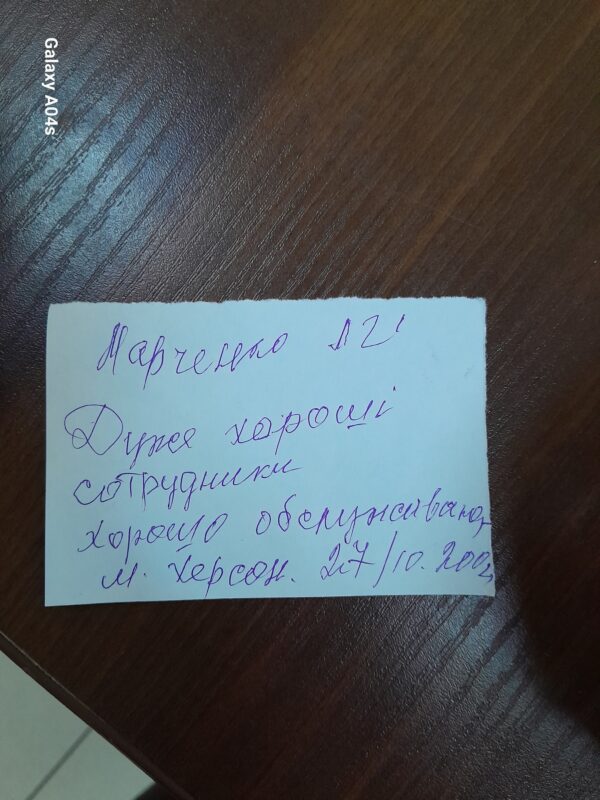 Galaxy A04s
Марченко
Дуже хороші
сотрудники
хорошо обслуживают
м. Херсон. 27/10.